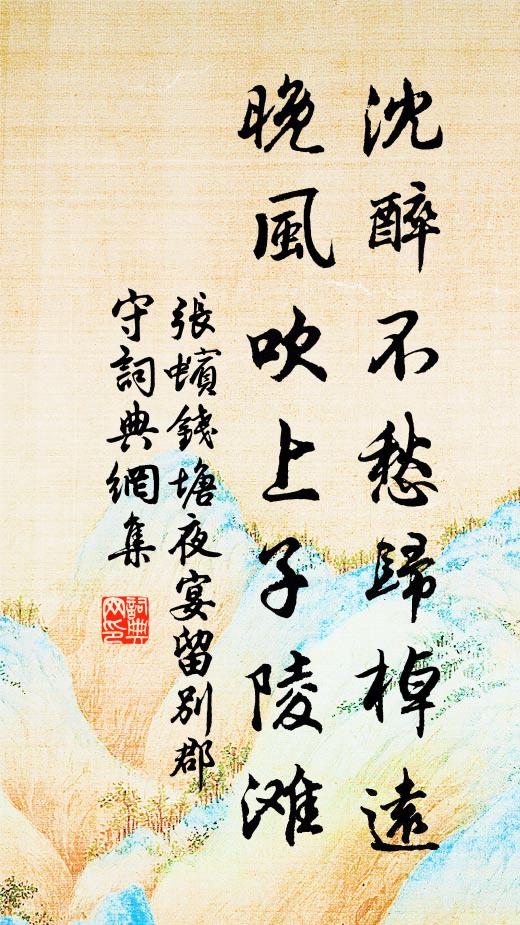 沈醉不愁歸棹遠
晚風吹上子陵滩
張蠙錢塘夜宴留別郡
守詞典網集
詞典
网印